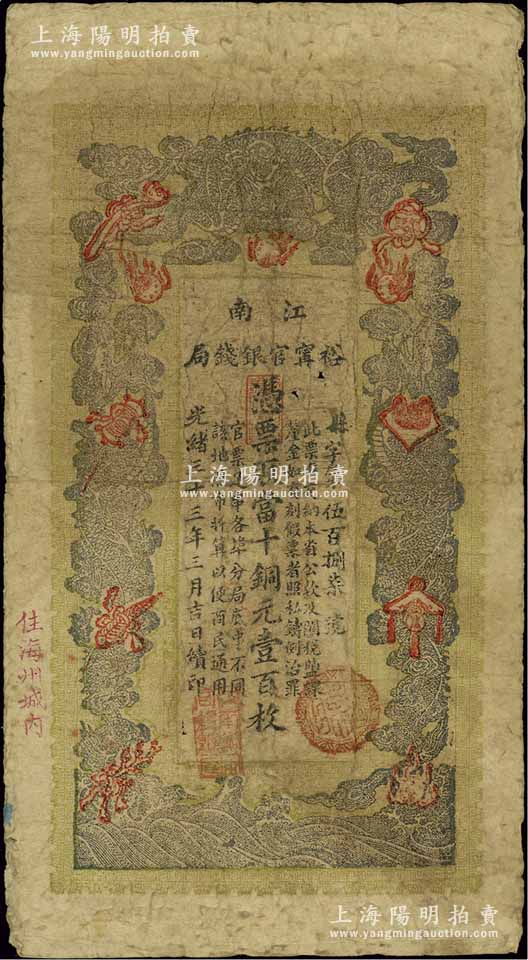 上海陽明拍賣
www.yangmingauction.com
江南
裕甯官銀錢局
縣字 伍百捌柒號
此票 納本省公欵及關稅鹽課
釐金 刻假票者照私鑄例治罪
憑票 當十銅元壹百枚
官票 各埠分局底串不同
該地 市折算以便商民通用
光緒三十三年三月吉日續印
住海州城内
上海陽明拍賣
www.yangmingauction.com
上海陽明拍賣
www.yangmingauction.com